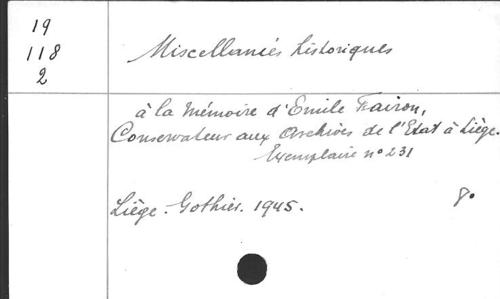 19
118
2
Miscellanées historiques
à la Mémoire d'Emile Fairon,
Conservateur aux Archives de l'Etat à Liège.
Exemplaire n° 231
Liège. Gothier. 1945.
8°